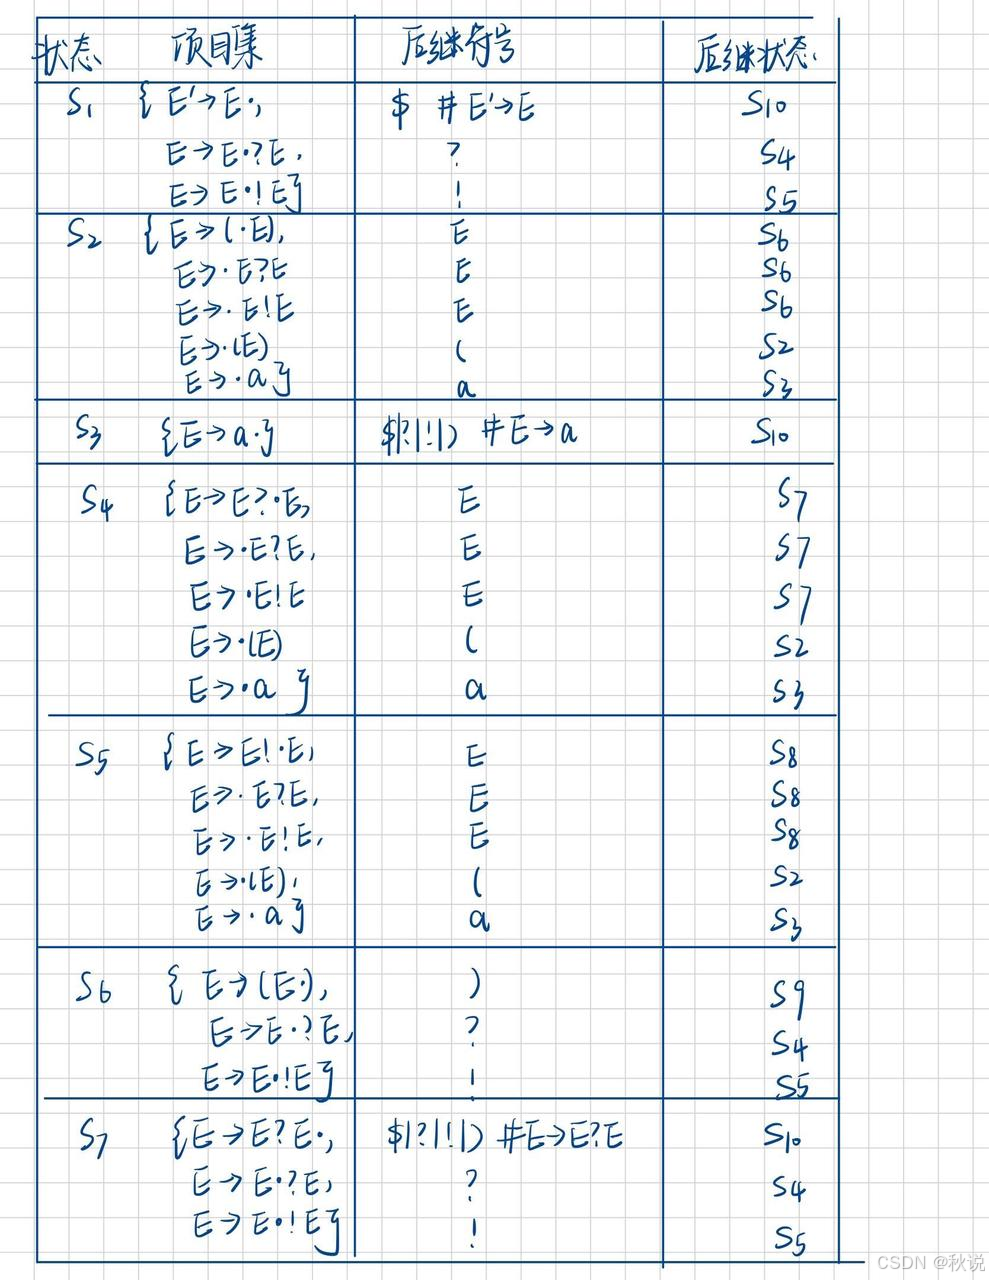 状态 项目集 后继符号 后继状态
S1 { E'→E·, $ #E'→E S10
E→E·?E, ? S4
E→E·!E} ! S5
S2 { E→(·E), E S6
E→·E?E E S6
E→·E!E E S6
E→·(E) ( S2
E→·a} a S3
S3 {E→a·} $|?|!|) #E→a S10
S4 {E→E?·E, E S7
E→·E?E, E S7
E→·E!E E S7
E→·(E) ( S2
E→·a } a S3
S5 { E→E!·E, E S8
E→·E?E, E S8
E→·E!E, E S8
E→·(E), ( S2
E→·a} a S3
S6 { E→(E·), ) S9
E→E·?E, ? S4
E→E·!E} ! S5
S7 {E→E?E·, $|?|!|) #E→E?E S10
E→E·?E, ? S4
E→E·!E} ! S5
CSDN @秋说